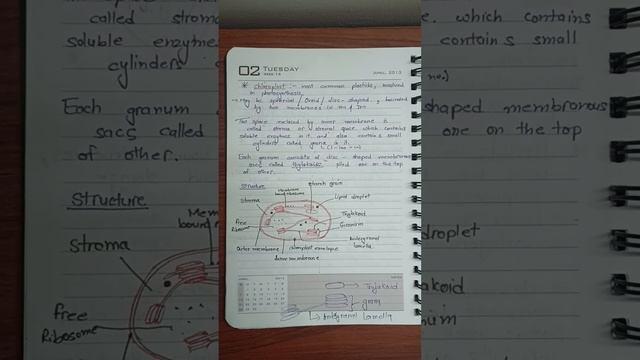 02 TUESDAY
WEEK 14
APRIL, 2013
* Chloroplast :- most common plastids, involved
in photosynthesis,
→ May be spherical / Ovoid / disc-shaped, bounded
by two membranes
The space enclosed by inner membrane is
called stroma or stromal space which contains
soluble enzymes in it and also contains small
cylinders called grana in it.
Each granum consists of disc-shaped membranous
sacs called Thylakoids, piled one on the top
of other.
Structure
Membrane
bound ribosome
starch grain
Stroma
Lipid droplet
Free
Ribosome
Thylakoid
Granum
Intergranal
lamella
Outer membrane
chloroplast envelope
Inner membrane
NOTES
→ Thylakoid
grana
→ Intergranal Lamella
called stroma
soluble enzyme
cylinders
Each granum
sacs called
of other.
Structure
bound
Stroma
free
Ribosome
which contains
contains small
shaped membranous
one on the top
droplet